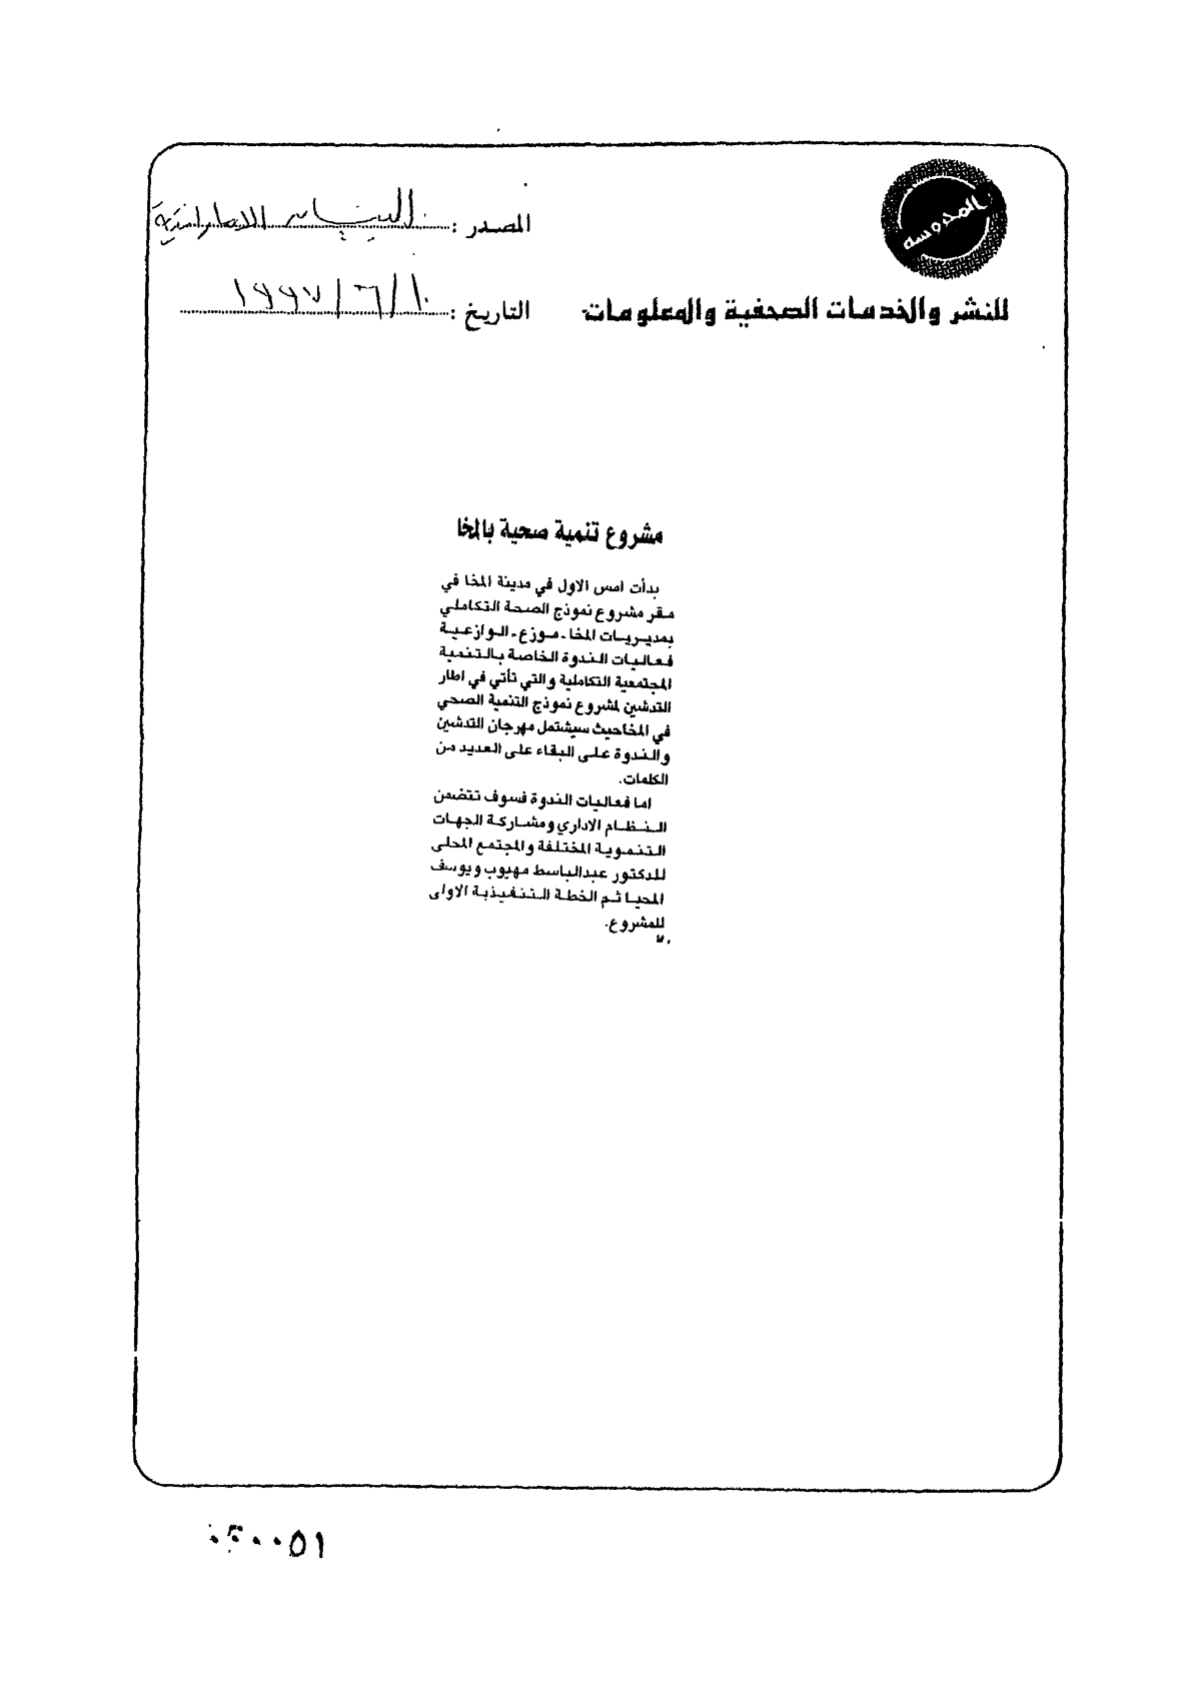 المحروسة
للنشر والخدمات الصحفية والمعلومات
المصدر : البيان الاماراتية
التاريخ : ١٠/٦/١٩٩٧
مشروع تنمية صحية بالمخا
بدأت امس الاول في مدينة المخا في
مقر مشروع نموذج الصحة التكاملي
بمديريات المخا ـ موزع ـ الوازعية
فعاليات الندوة الخاصة بالتنمية
المجتمعية التكاملية والتي تأتي في اطار
التدشين لمشروع نموذج التنمية الصحي
في المخاحيث سيشتمل مهرجان التدشين
والندوة على البقاء على العديد من
الكلمات.
اما فعاليات الندوة فسوف تتضمن
النظام الاداري ومشاركة الجهات
التنموية المختلفة والمجتمع المحلى
للدكتور عبدالباسط مهيوب ويوسف
المحيا ثم الخطة التنفيذية الاولى
للمشروع.